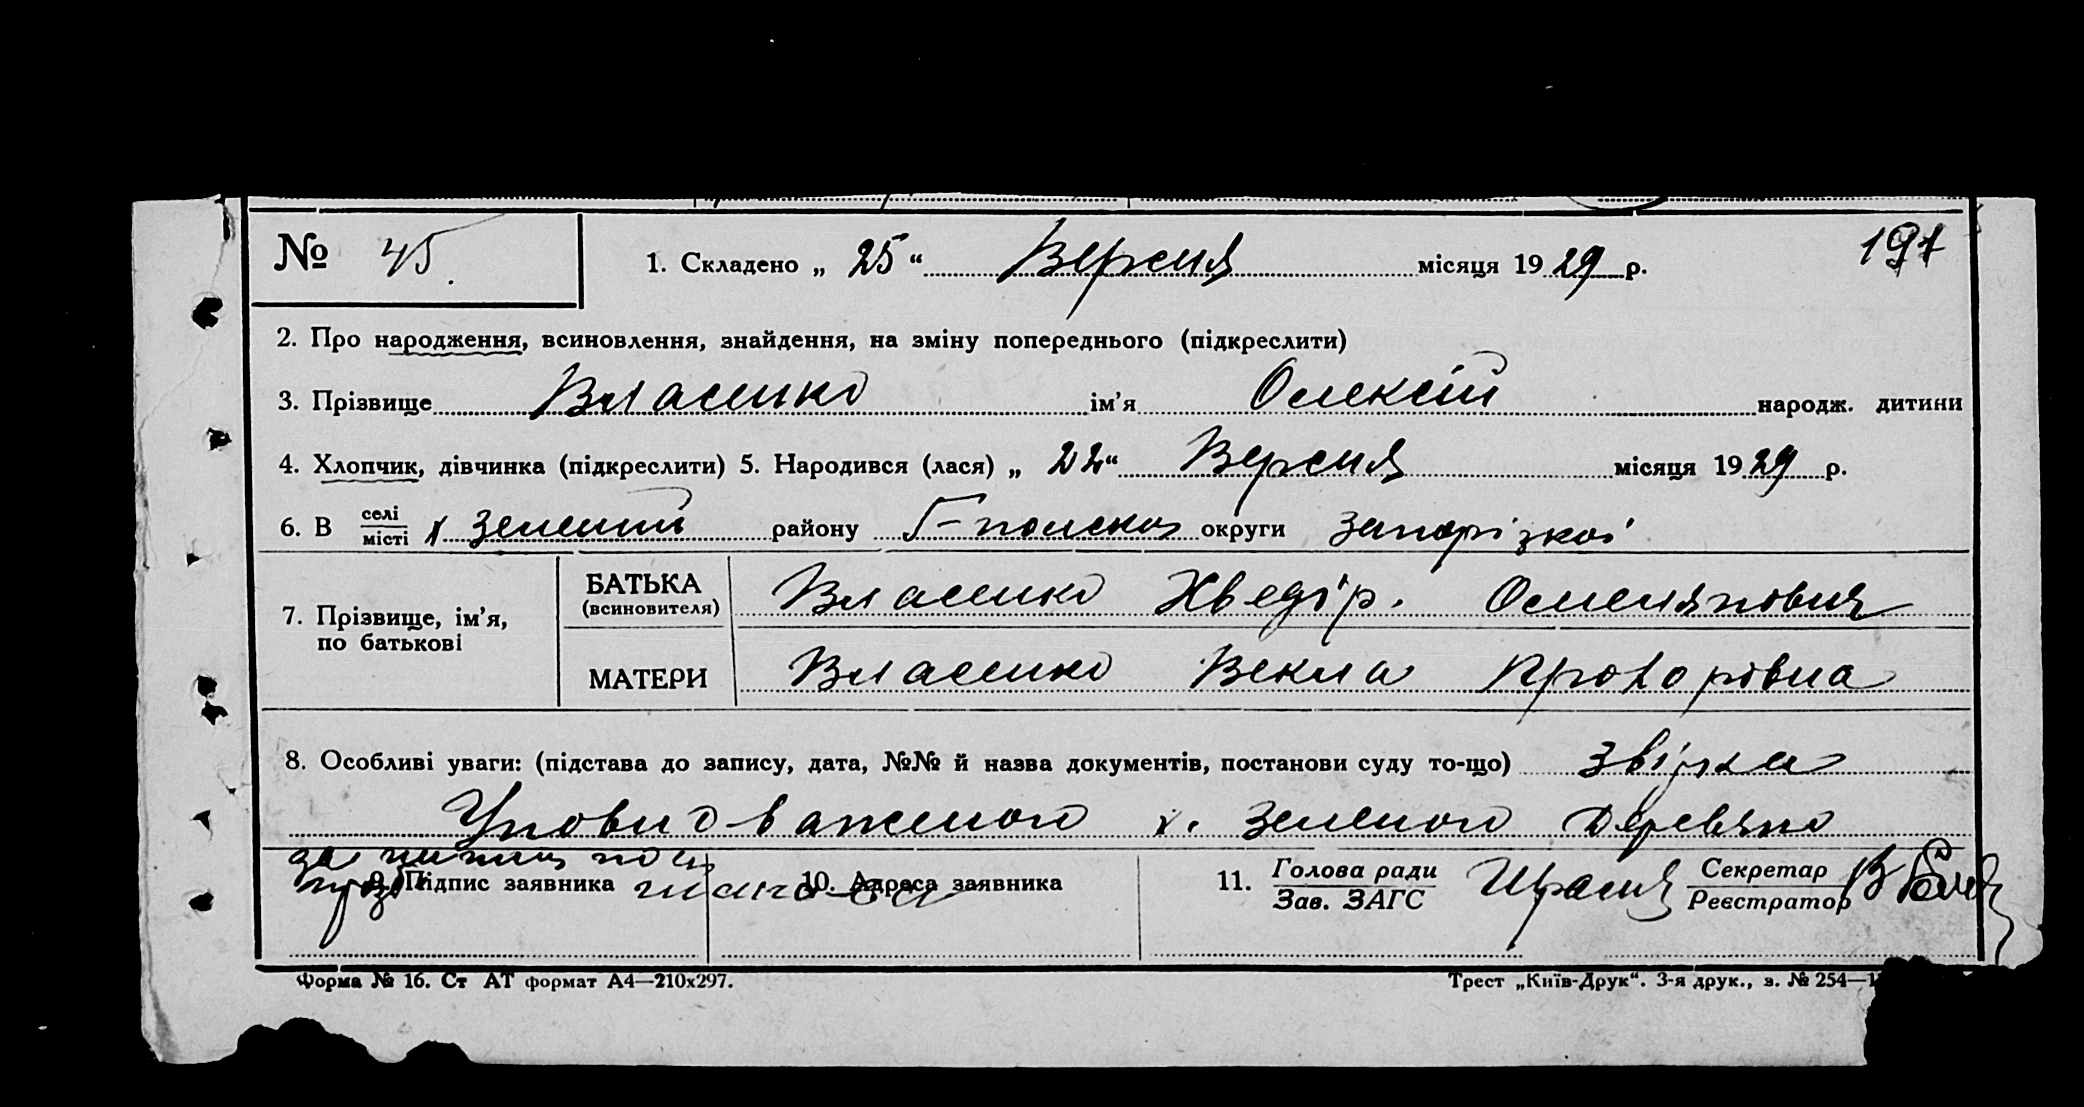 № 45. 1. Складено „ 25 “ Версня місяця 19 29 р. 191
2. Про народження, всиновлення, знайдення, на зміну попереднього (підкреслити)
3. Прізвище Власенко ім’я Олексій народж. дитини
4. Хлопчик, дівчинка (підкреслити) 5. Народився (лася) „ 22 “ Версня місяця 19 29 р.
6. В селі/місті х Зелений району Г-польског округи Запорізкої
7. Прізвище, ім’я, по батькові
БАТЬКА (всиновителя) Власенко Хведір.
МАТЕРИ Власенко Векла Прохорівна
8. Особливі уваги: (підстава до запису, дата, №№ й назва документів, постанови суду то-що)
Уповноваженого х. Зеленого Деревянко
9. Підпис заявника 10. Адреса заявника 11. Голова ради/Зав. ЗАГС Секретар/Реєстратор
Форма № 16. Ст АТ формат А4—210х297. Трест „Київ-Друк“. 3-я друк., з. № 254—1